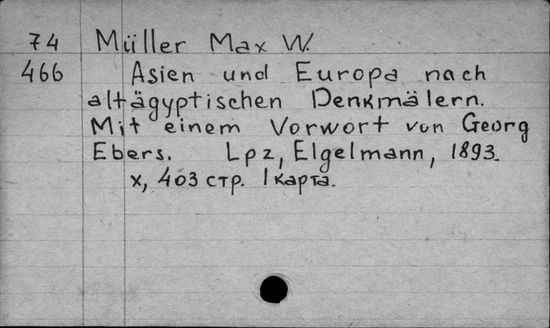 74 Müller Max W.
466 Asien und Europa nach
altägyptischen Denkmälern.
Mit einem Vorwort von Georg
Ebers. Lpz, Elgelmann, 1893.
x, 403 стр. 1 карта.